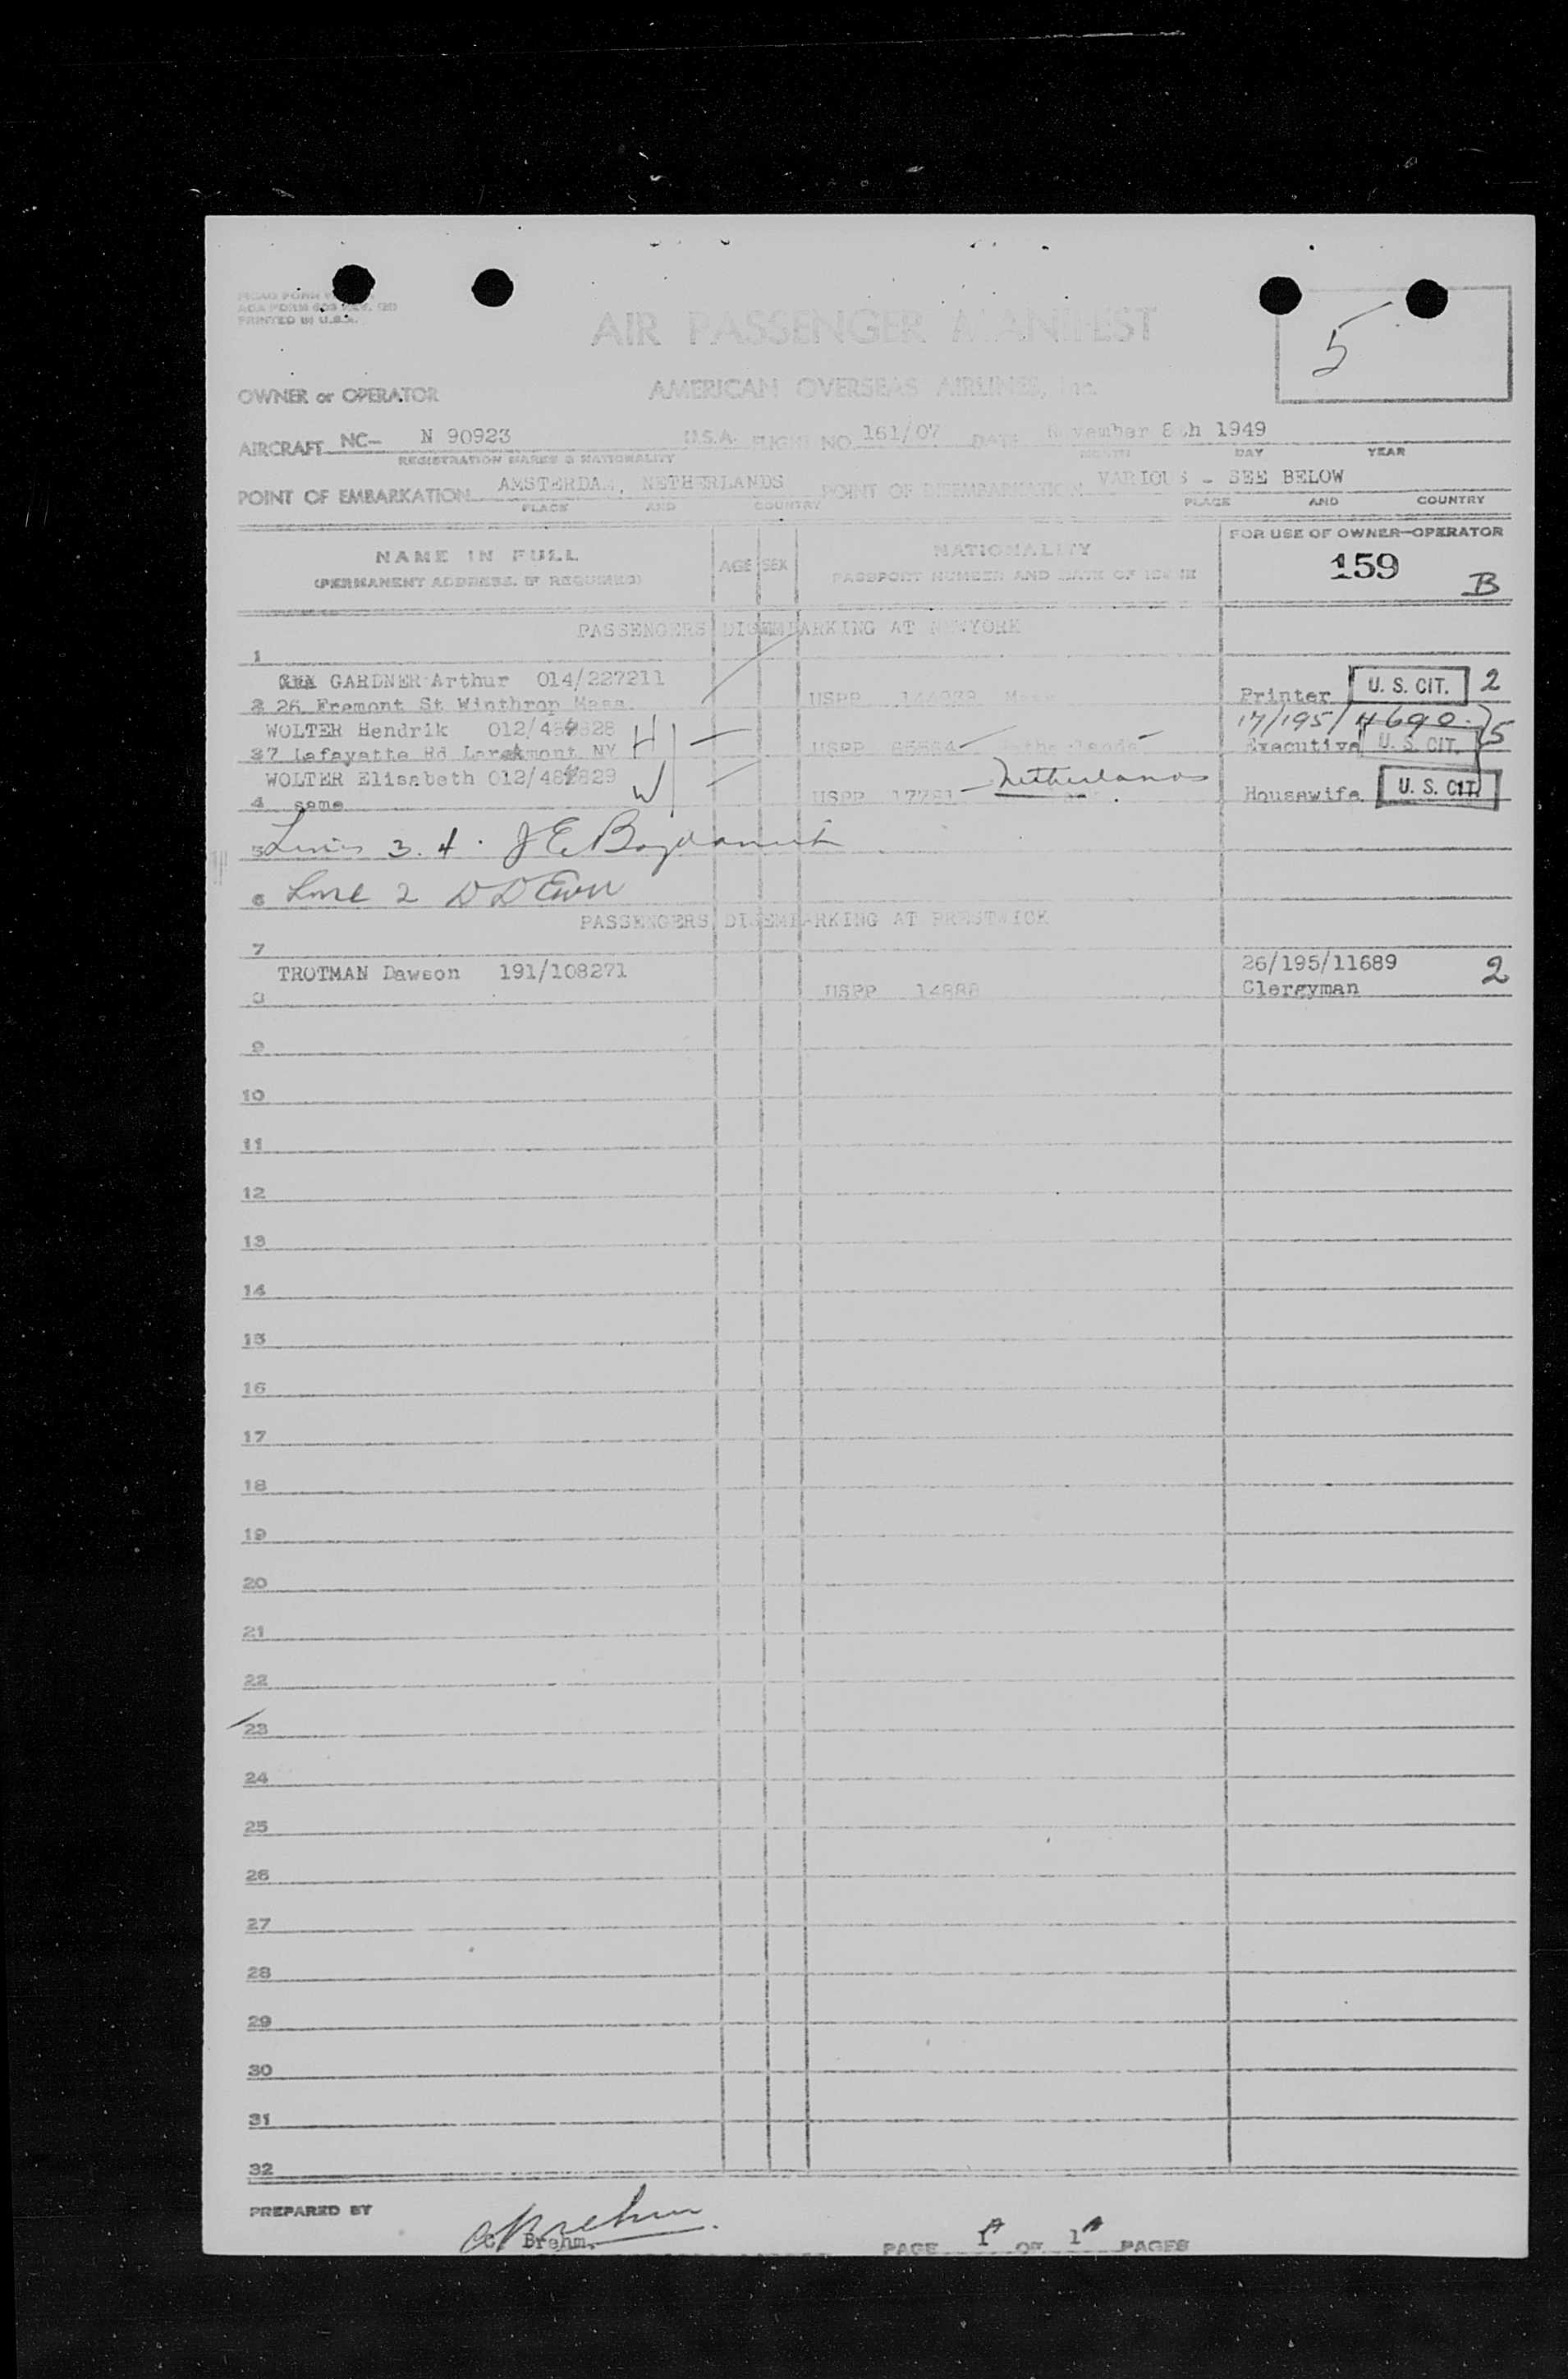 AOA FORM 603 REV.
PRINTED IN U.S.A.
AIR PASSENGER MANIFEST
5
OWNER or OPERATOR AMERICAN OVERSEAS AIRLINES, Inc.
AIRCRAFT NC- N 90923 U.S.A. FLIGHT NO. 161/07 DATE November 8th 1949
REGISTRATION MARKS & NATIONALITY MONTH DAY YEAR
POINT OF EMBARKATION AMSTERDAM, NETHERLANDS POINT OF DISEMBARKATION VARIOUS - SEE BELOW
PLACE AND COUNTRY PLACE AND COUNTRY
NAME IN FULL AGE SEX NATIONALITY FOR USE OF OWNER-OPERATOR
(PERMANENT ADDRESS, IF REQUIRED) PASSPORT NUMBER AND DATE OF ISSUE 159 B
PASSENGERS DISEMBARKING AT NEWYORK
1
GARDNER Arthur 014/227211
2 26 Fremont St Winthrop Mass. USPP Printer U. S. CIT. 2
WOLTER Hendrik 17/195/4690 5
3 7 Lafayette Rd Larchmont NY H USPP Netherlands Executive U. S. CIT.
WOLTER Elisabeth W Netherlands
4 same USPP Housewife U. S. CIT.
5 Lines 3. 4.
6 Line 2
PASSENGERS DISEMBARKING AT PRESTWICK
7
TROTMAN Dawson 191/108271 26/195/11689 2
8 USPP 14888 Clergyman
9
10
11
12
13
14
15
16
17
18
19
20
21
22
23
24
25
26
27
28
29
30
31
32
PREPARED BY
C Brehm.
C. Brehm. PAGE 1A OF 1A PAGES